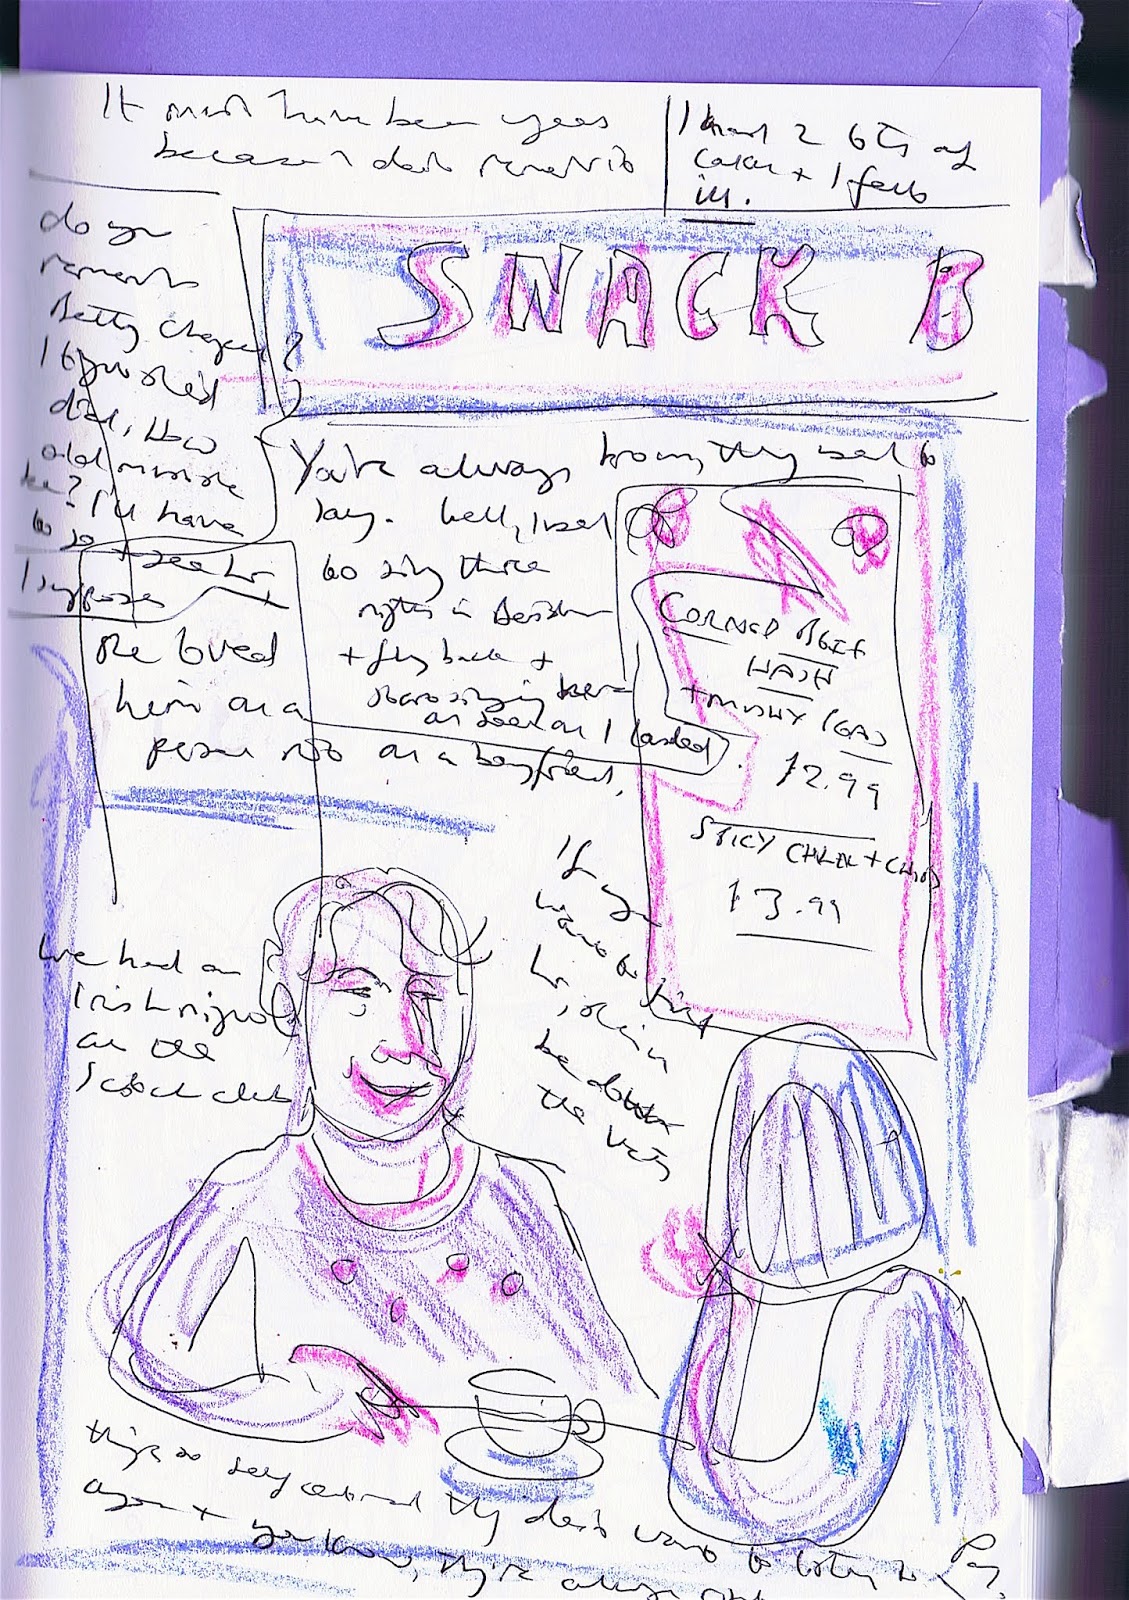 It must have been years
because I don't remember it
I had 2 bits of
colour + I felt
ill.
SNACK B
do you
remember
Betty
she's
died, How
old must she
be? I'll have
to go + see her
I suppose
You're always
they used to
say. Well, I used
to sing three
nights in
+ fly back +
start singing here
as soon as I landed.
She loved
him as a
person not as a boyfriend.
CORNED BEEF
HASH
+ MUSHY PEAS
£2.99
SPICY + CHIPS
£3.99
We had an
Irish night
at the
Scotch club
If you
want to find
her, she'll
be down
the
they're so self centred they don't want to listen to
you know, they're always right